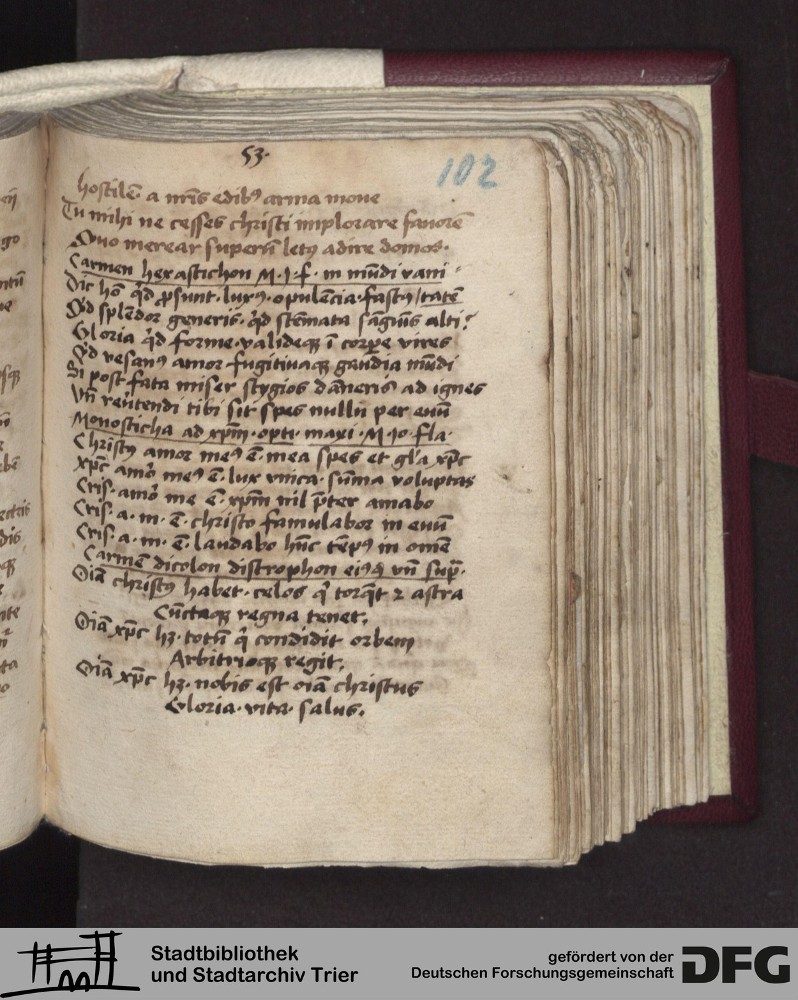 53.
102
hostilē a nr̄is edibꝰ arma moue
Tu mihi ne cesses christi implorare fauorē
Quo merear superū letꝰ adire domos.
Carmen hexastichon M. J. f. in mūdi vani
Dic hō qd ꝓsunt. luxꝰ. opulēcia. fastꝰ/tatē
Qd splēdor generis. qd stēmata sāgnis alti?
Gloria qd forme. valideqꝫ ī corꝑe vires
Qd vesanꝰ amor. fugitiuaqꝫ gaudia mūdi
Si post fata miser stygios dāneris ad ignes
Vn̄ reūtendi tibi sit spes nullū per euū
Monosticha ad xp̄m. opti. maxi. M. Jo. fla.
Christꝰ amor meꝰ ē. mea spes et gl'a xp̄c
xp̄c amor meꝰ ē. lux vnica. sūma voluptas
Cris. amor me ē. xp̄m nil p̄ter amabo
Cris. a. m. ē. christo famulabor in euū
Cris. a. m. ē. laudabo hūc tēpꝰ in omē
Carmē dicolon distrophon eiꝰdē vn̄ sup̄.
Oīa christꝰ habet. celos qi torq̄t ⁊ astra
Cūctaqꝫ regna tenet.
Oīa xp̄c hꝫ. totū qi condidit orbem
Arbitrioqꝫ regit.
Oīa xp̄c hꝫ. nobis est oīa christus
Gloria. vita. salus.
Stadtbibliothek
und Stadtarchiv Trier
gefördert von der
Deutschen Forschungsgemeinschaft
DFG